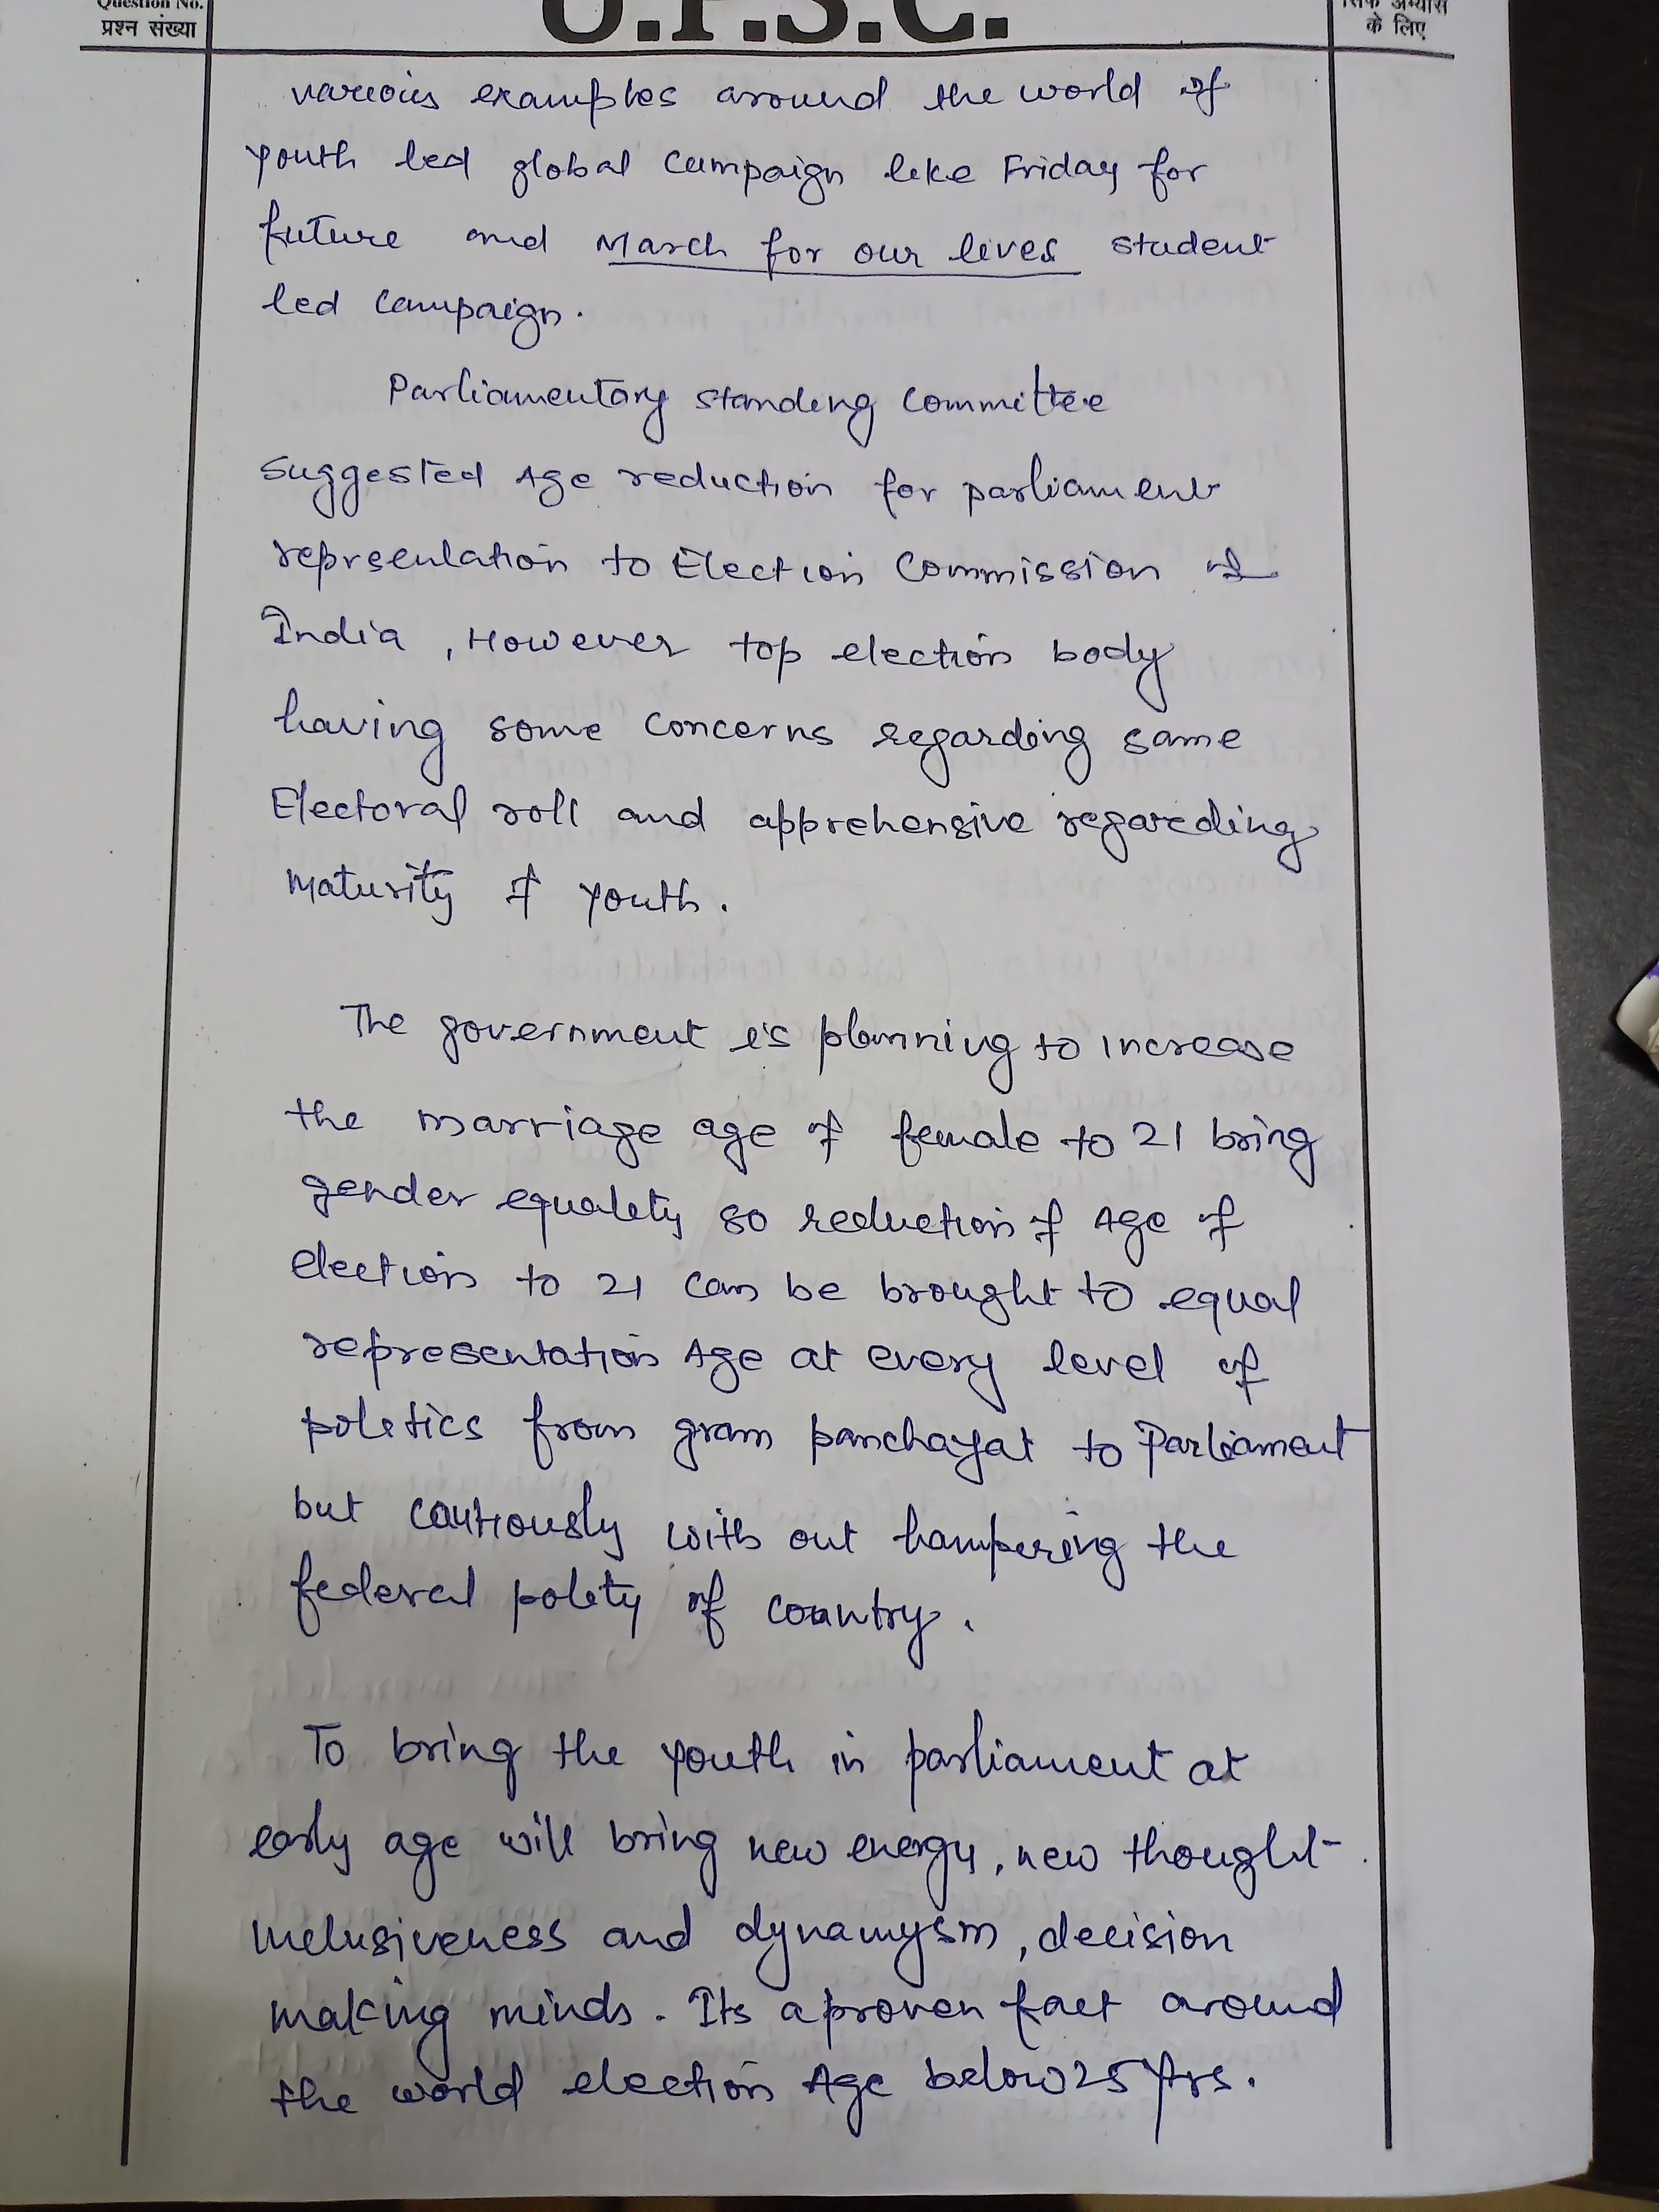 Question No.
प्रश्न संख्या
U.P.S.C.
सिर्फ अभ्यास
के लिए
various examples around the world of
youth led global campaign like Friday for
future and March for our lives student
led campaign.
Parliamentary standing committee
suggested Age reduction for parliament
represntation to Election Commission of
India , However top election body
having some concerns regarding same
Electoral roll and apprehensive regareding
maturity of youth.
The government is planning to increase
the marriage age of female to 21 bring
gender equality so reduction of Age of
election to 21 can be brought to equal
representation Age at every level of
politics from gram panchayat to Parliament
but cautiously with out hampering the
federal polity of country.
To bring the youth in parliament at
early age will bring new energy, new thought
inclusiveness and dynamysm, decision
making minds. Its a proven fact around
the world election Age below 25 yrs.